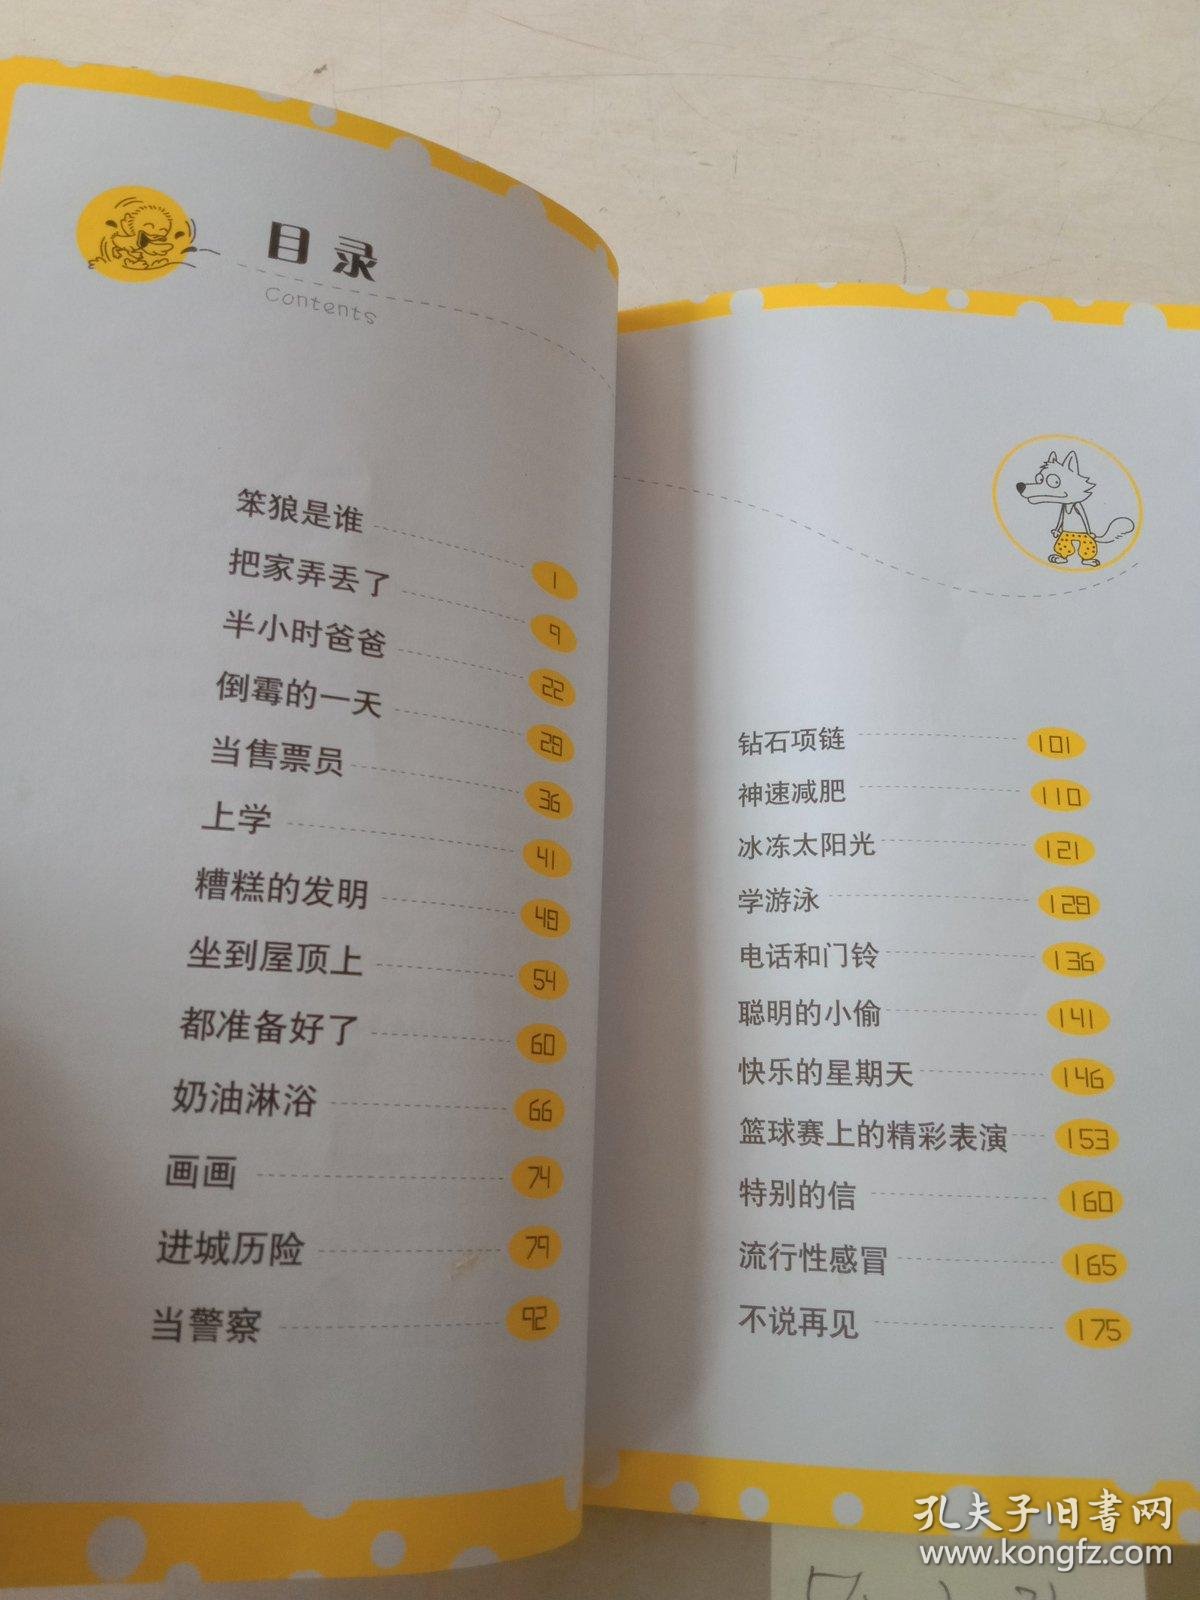 目录
Contents
笨狼是谁 1
把家弄丢了 9
半小时爸爸 22
倒霉的一天 29
当售票员 36
上学 41
糟糕的发明 49
坐到屋顶上 54
都准备好了 60
奶油淋浴 66
画画 74
进城历险 79
当警察 92
钻石项链 101
神速减肥 110
冰冻太阳光 121
学游泳 129
电话和门铃 136
聪明的小偷 141
快乐的星期天 146
篮球赛上的精彩表演 153
特别的信 160
流行性感冒 165
不说再见 175
孔夫子旧書网
www.kongfz.com